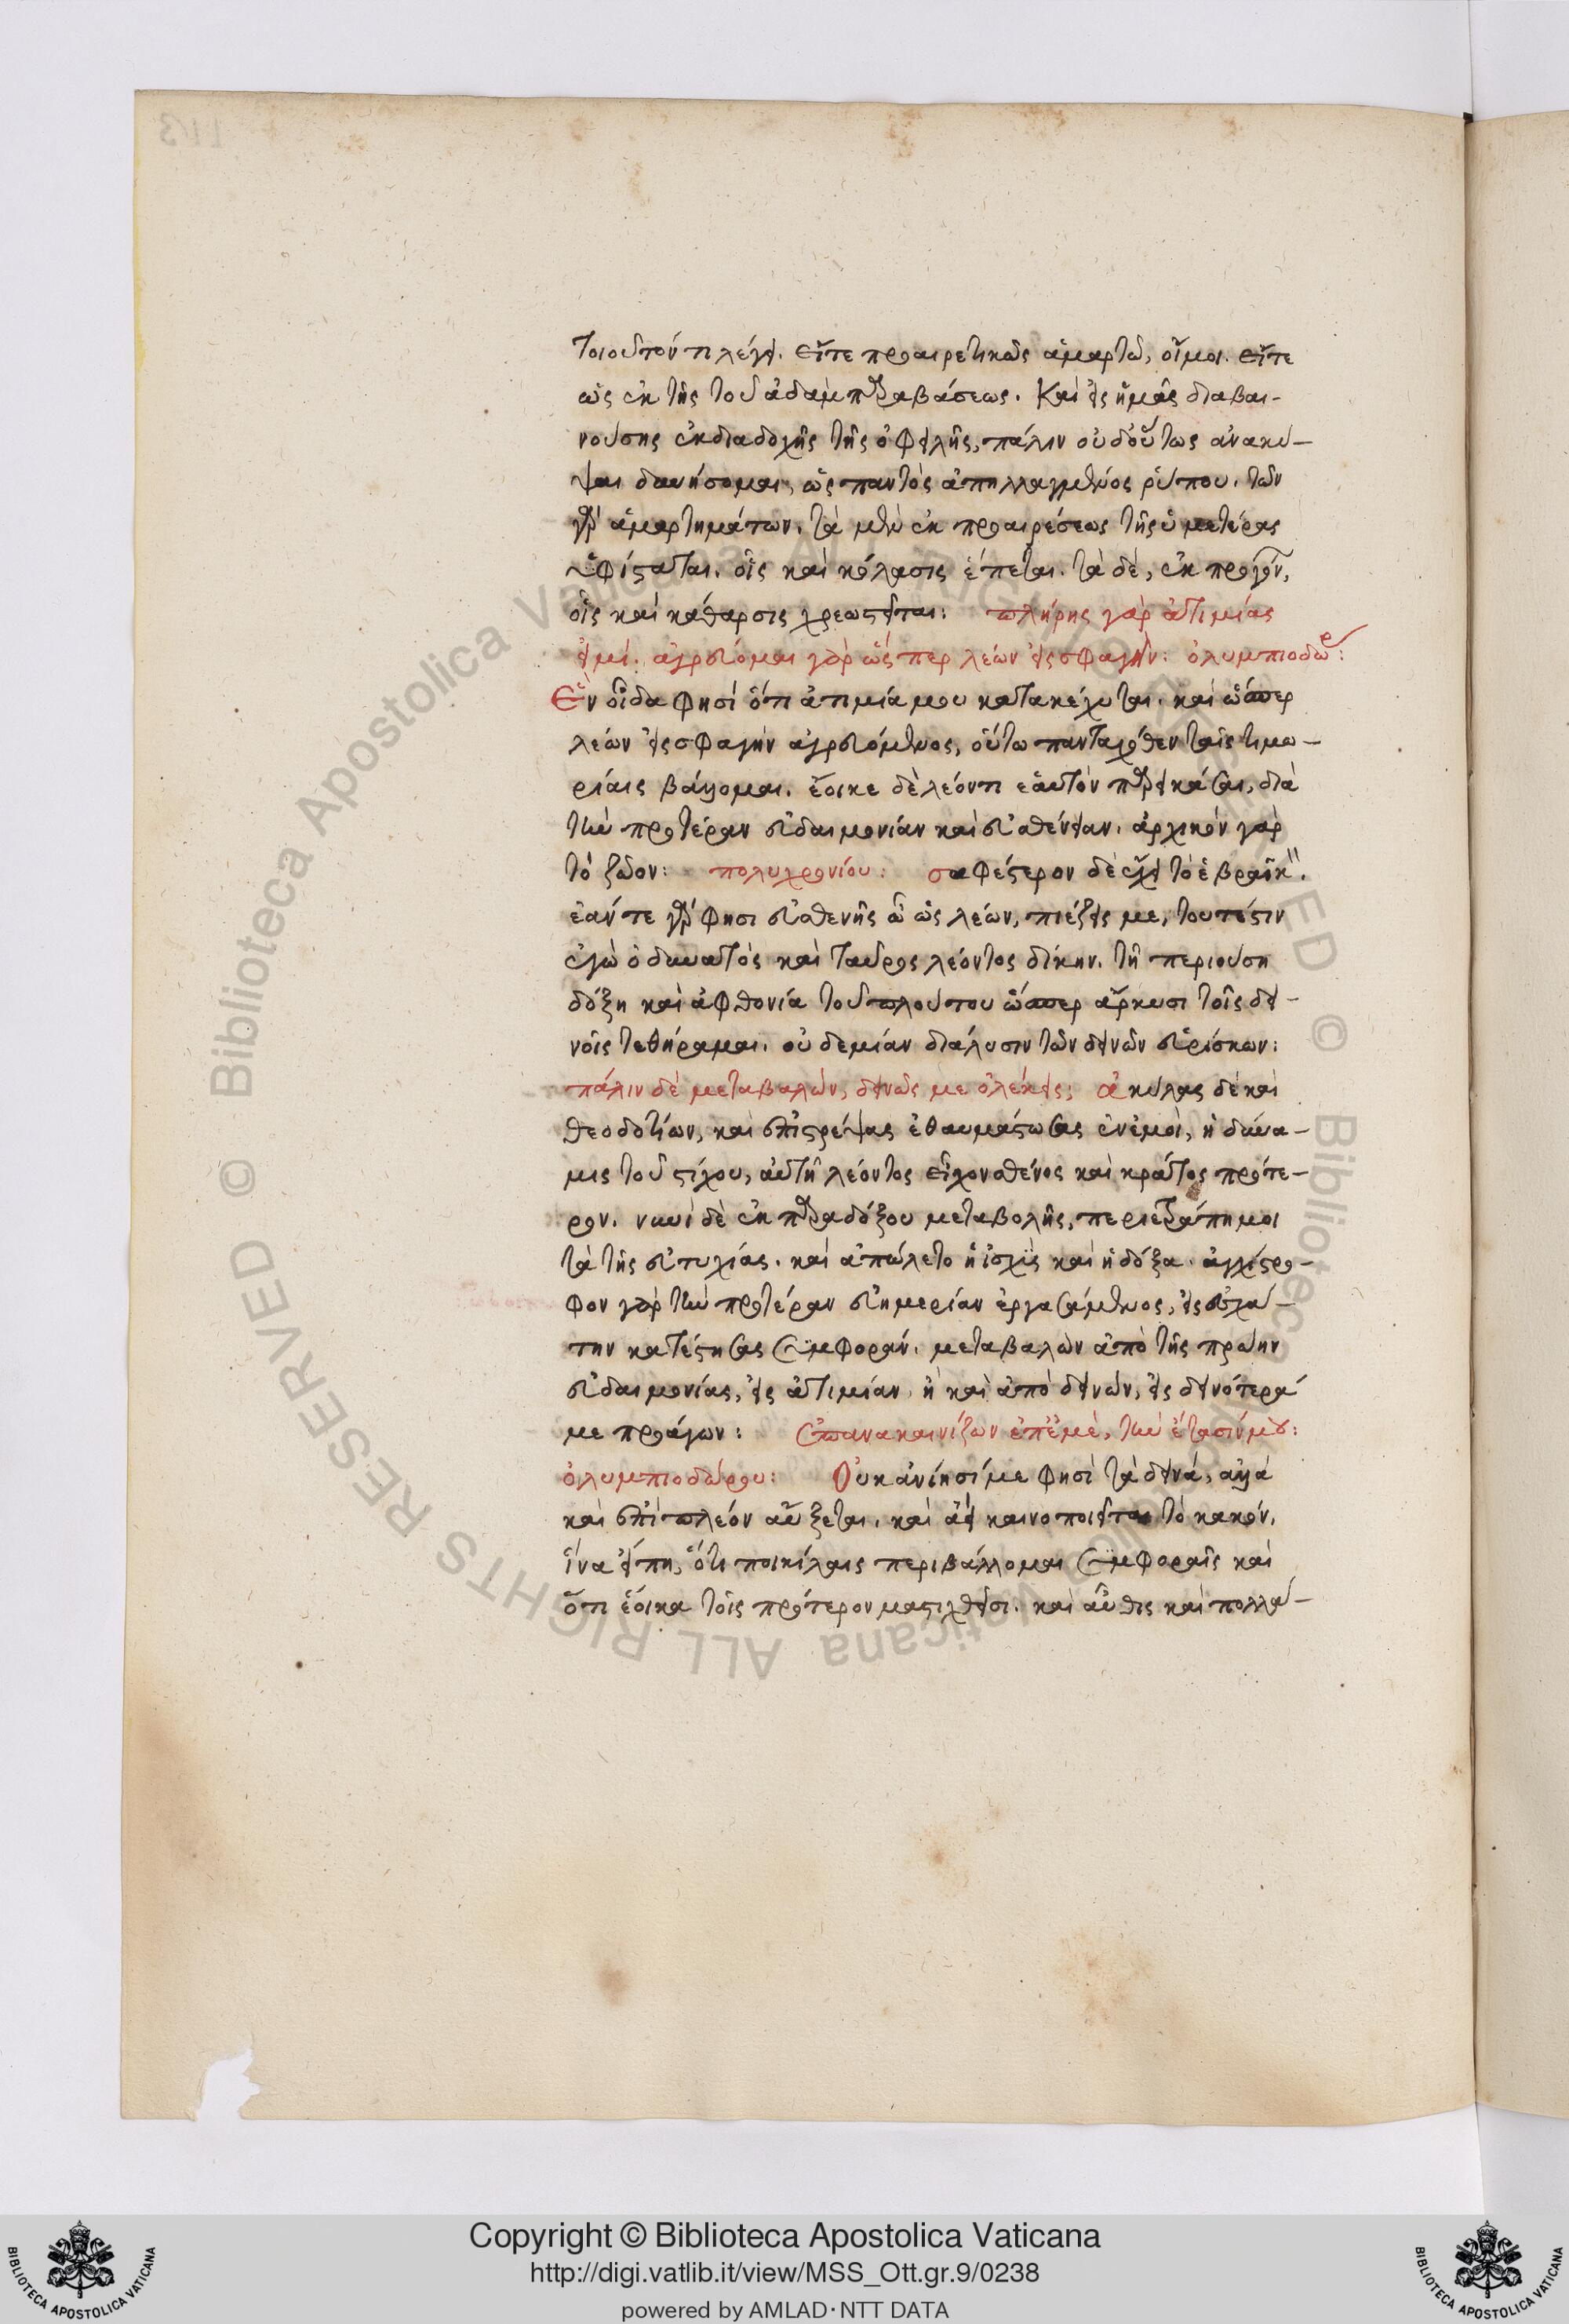 τοιοῦτόν τι λέγει. εἴτε προαιρετικῶς ἁμαρτῶ, οἴμοι. εἴτε
ὡς ἐκ τῆς τοῦ ἀδὰμ παραβάσεως. καὶ εἰς ἡμᾶς διαβαι-
νούσης ἐκδιαδοχῆς τῆς ὀφειλῆς, πάλιν οὐδ οὕτως ἀνακύ-
ψαι δυνήσομαι, ὡς παντὸς ἀπηλλαγμένος ῥύπου. τῶν
γὰρ ἁμαρτημάτων, τὰ μὲν ἐκ προαιρέσεως τῆς ὑμετέρας
ὑφίσταται. οἷς καὶ κόλασις ἕπεται. τὰ δὲ, ἐκ προγόν,
οἷς καὶ κάθαρσις χρεωστεῖται: πλήρης γὰρ ἀτιμίας
εἰμί. ἀγρεύομαι γὰρ ὥσπερ λέων εἰς σφαγήν: ὀλυμπιοδώρ:
Ἓν οἶδα φησὶ ὅτι ἀτιμία μου κατακέχυται. καὶ ὥσπερ
λέων εἰς σφαγὴν ἀγρευόμενος, οὕτω πανταχόθεν ταῖς τιμω-
ρίαις βάλλομαι. ἔοικε δὲ λέοντι ἑαυτὸν παρεικάσαι, διὰ
τὴν προτέραν εὐδαιμονίαν καὶ εὐσθένειαν. ἀρχικὸν γὰρ
τὸ ζῶον: πολυχρονίου: σαφέστερον δὲ εἶχε τὸ ἑβραϊκ".
ἐάν τε γάρ φησι εὐσθενὴς ὦ ὡς λέων, πιέζεις με, τουτέστιν
ἐγὼ ὁ δυνατὸς καὶ γαῦρος λέοντος δίκην. τῇ περιούσῃ
δόξῃ καὶ ἀφθονία τοῦ πλούτου ὥσπερ ἄρκυσι τοῖς δει-
νοῖς τεθήραμαι. οὐδεμίαν διάλυσιν τῶν δεινῶν εὑρίσκων:
πάλιν δὲ μεταβαλὼν, δεινῶς με ὀλέκεις: ἀκύλας δὲ καὶ
θεοδοτίων, καὶ ἐπιστρέψας ἐθαυμάστωσας ἐν ἐμοὶ, ἡ δύνα-
μις τοῦ στίχου, αὕτη λέοντος εἶχον σθένος καὶ κράτος πρότε-
ρον. νυνὶ δὲ ἐκ παραδόξου μεταβολῆς, περιετράπη μοι
τὰ τῆς εὐτυχίας. καὶ ἀπώλετο ἡ ἰσχὺς καὶ ἡ δόξα. ἀγχίστρο-
φον γὰρ τὴν προτέραν εὐημερίαν ἐργασάμενος, εἰς ἐσχά-
την κατέστησας συμφοράν. μεταβαλὼν ἀπὸ τῆς πρώην
εὐδαιμονίας, εἰς ἀτιμίαν, ἢ καὶ ἀπὸ δεινῶν, εἰς δεινότερά
με προάγων: ἐπανακαινίζων ἐπ' ἐμὲ, τὴν ἔτασίν μου:
ὀλυμπιοδώρου: Οὐκ ἀνίησί με φησὶ τὰ δεινά, ἀλλὰ
καὶ ἐπὶ πλεόν αὔξεται. καὶ ἀεὶ καινοποιεῖται τὸ κακόν,
ἵνα εἴπῃ, ὅτι ποικίλαις περιβάλλομαι συμφοραῖς καὶ
ὅτι ἔοικα τοῖς πρότερον μαστιχθεῖσι. καὶ αὖθις καὶ πολλά-
Copyright © Biblioteca Apostolica Vaticana
http://digi.vatlib.it/view/MSS_Ott.gr.9/0238
powered by AMLAD·NTT DATA
BIBLIOTECA APOSTOLICA VATICANA
BIBLIOTECA APOSTOLICA VATICANA
© Biblioteca Apostolica Vaticana ALL RIGHTS RESERVED © Biblioteca Apostolica Vaticana ALL RIGHTS RESERVED